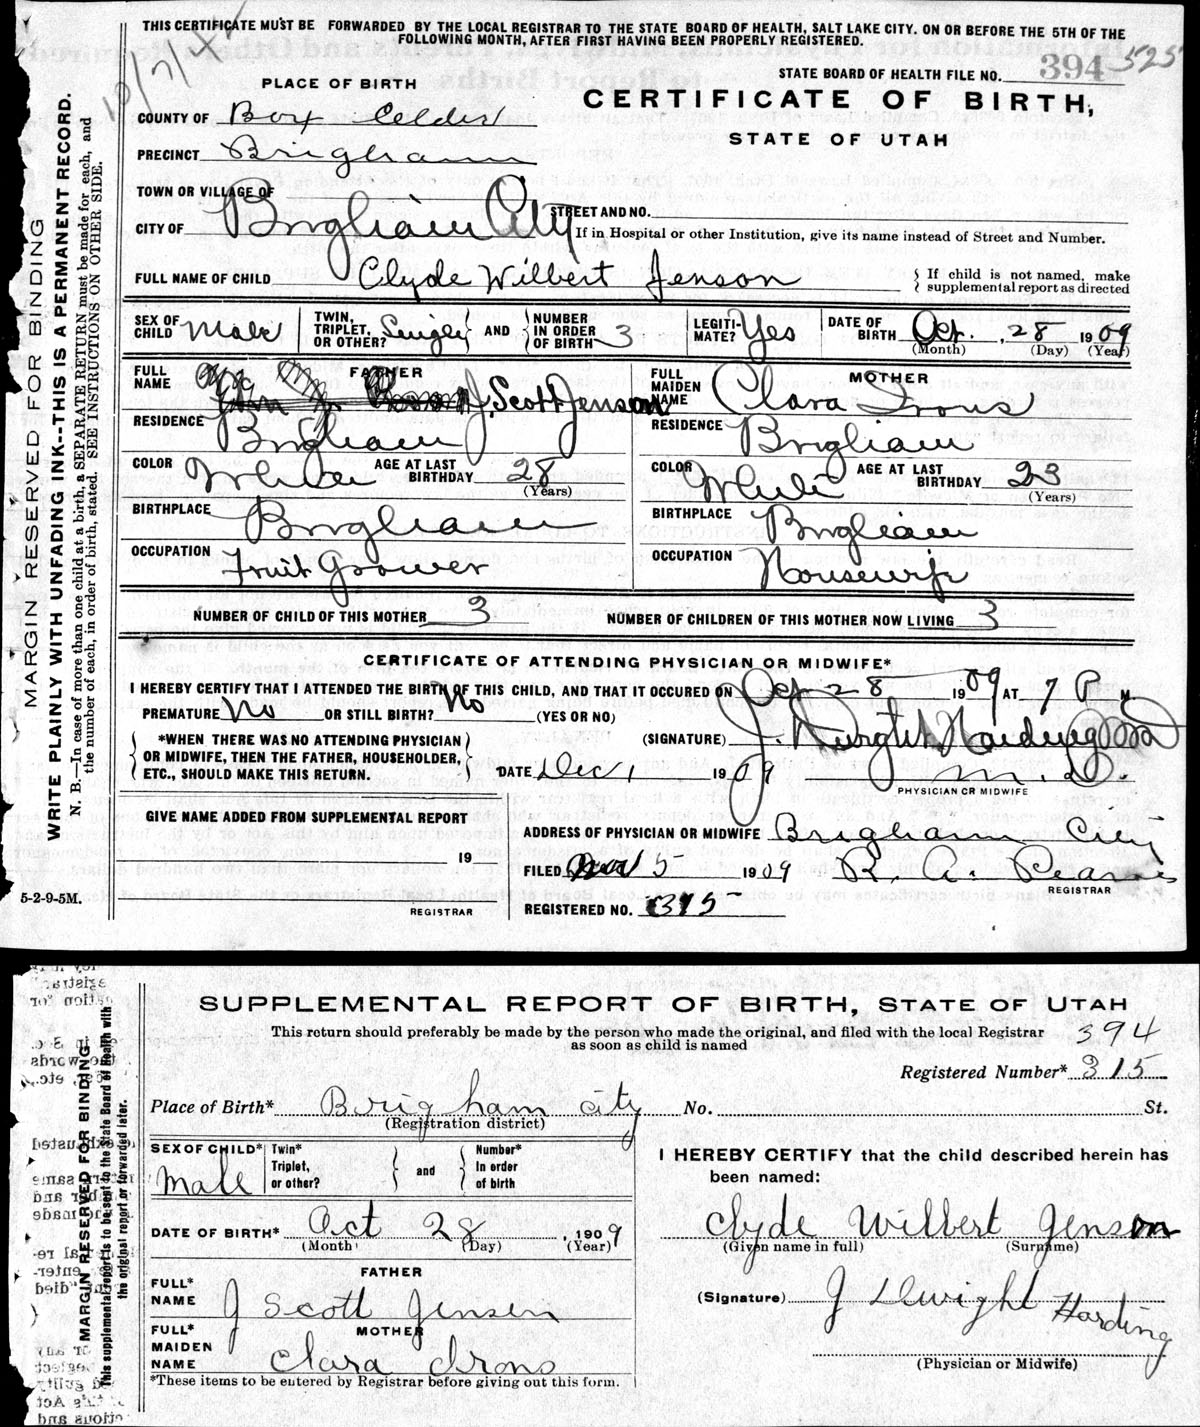 THIS CERTIFICATE MUST BE FORWARDED BY THE LOCAL REGISTRAR TO THE STATE BOARD OF HEALTH, SALT LAKE CITY. ON OR BEFORE THE 5TH OF THE
FOLLOWING MONTH, AFTER FIRST HAVING BEEN PROPERLY REGISTERED.
STATE BOARD OF HEALTH FILE NO. 394 525
PLACE OF BIRTH
CERTIFICATE OF BIRTH,
STATE OF UTAH
COUNTY OF Box Elder
PRECINCT Brigham
TOWN OR VILLAGE OF
STREET AND NO.
CITY OF Brigham City
If in Hospital or other Institution, give its name instead of Street and Number.
FULL NAME OF CHILD Clyde Wilbert Jenson
{ If child is not named, make
supplemental report as directed
SEX OF CHILD Male
TWIN, TRIPLET, OR OTHER? Single AND NUMBER IN ORDER OF BIRTH 3
LEGITIMATE? Yes
DATE OF BIRTH Oct. , 28 1909
(Month) (Day) (Year)
FATHER
FULL NAME J. Scott Jenson
RESIDENCE Brigham
COLOR White AGE AT LAST BIRTHDAY 28
(Years)
BIRTHPLACE Brigham
OCCUPATION Fruit Grower
MOTHER
FULL MAIDEN NAME Clara Irons
RESIDENCE Brigham
COLOR White AGE AT LAST BIRTHDAY 23
(Years)
BIRTHPLACE Brigham
OCCUPATION Housewife
NUMBER OF CHILD OF THIS MOTHER 3 NUMBER OF CHILDREN OF THIS MOTHER NOW LIVING 3
CERTIFICATE OF ATTENDING PHYSICIAN OR MIDWIFE*
I HEREBY CERTIFY THAT I ATTENDED THE BIRTH OF THIS CHILD, AND THAT IT OCCURED ON Oct 28 1909 AT 7 P M.
PREMATURE No OR STILL BIRTH? No (YES OR NO)
*WHEN THERE WAS NO ATTENDING PHYSICIAN
OR MIDWIFE, THEN THE FATHER, HOUSEHOLDER,
ETC., SHOULD MAKE THIS RETURN.
(SIGNATURE) J. Dwight Harding MD
DATE Dec 1 1909 M. D.
PHYSICIAN OR MIDWIFE
GIVE NAME ADDED FROM SUPPLEMENTAL REPORT
19
REGISTRAR
ADDRESS OF PHYSICIAN OR MIDWIFE Brigham City
FILED 5 1909 R. A. Pearse
REGISTRAR
REGISTERED NO. 315
5-2-9-5M.
MARGIN RESERVED FOR BINDING
WRITE PLAINLY WITH UNFADING INK--THIS IS A PERMANENT RECORD.
N. B.—In case of more than one child at a birth, a SEPARATE RETURN must be made for each, and
the number of each, in order of birth, stated. SEE INSTRUCTIONS ON OTHER SIDE.
SUPPLEMENTAL REPORT OF BIRTH, STATE OF UTAH
This return should preferably be made by the person who made the original, and filed with the local Registrar
as soon as child is named
394
Registered Number* 315
Place of Birth* Brigham city No. St.
(Registration district)
SEX OF CHILD* male
Twin* Triplet, or other? and Number* In order of birth
DATE OF BIRTH* Oct 28, 1909
(Month) (Day) (Year)
FATHER
FULL* NAME J Scott Jensen
MOTHER
FULL* MAIDEN NAME Clara Irons
*These items to be entered by Registrar before giving out this form.
I HEREBY CERTIFY that the child described herein has
been named:
Clyde Wilbert Jenson
(Given name in full) (Surname)
(Signature) J Dwight Harding
(Physician or Midwife)
MARGIN RESERVED FOR BINDING
This supplemental report is to be sent to the State Board of Health with
the original report or forwarded later.